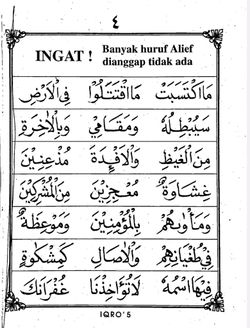 ٤
INGAT ! Banyak huruf Alief
dianggap tidak ada
مَا اكْتَسَبَتْ مَا اقْتَتَلُوا فِي الْاَرْضِ
سَيُبْطِلُهُ وَمَقَامِي وَبِالْاٰخِرَةِ
مِنَ الْغَيْظِ وَالْاَفْئِدَةَ مُذْعِنِيْنَ
غِشَاوَةٌ مُعْجِزِيْنَ مِنَ الْمُشْرِكِيْنَ
وَمَأْوٰىهُمْ بِالْمُؤْمِنِيْنَ وَمَوْعِظَةً
فِيْ طُغْيَانِهِمْ وَالْاٰصَالِ كَمِشْكٰوةٍ
فِيْهَا اسْمُهُ لَا تُؤَاخِذْنَا غُفْرَانَكَ
IQRO'5